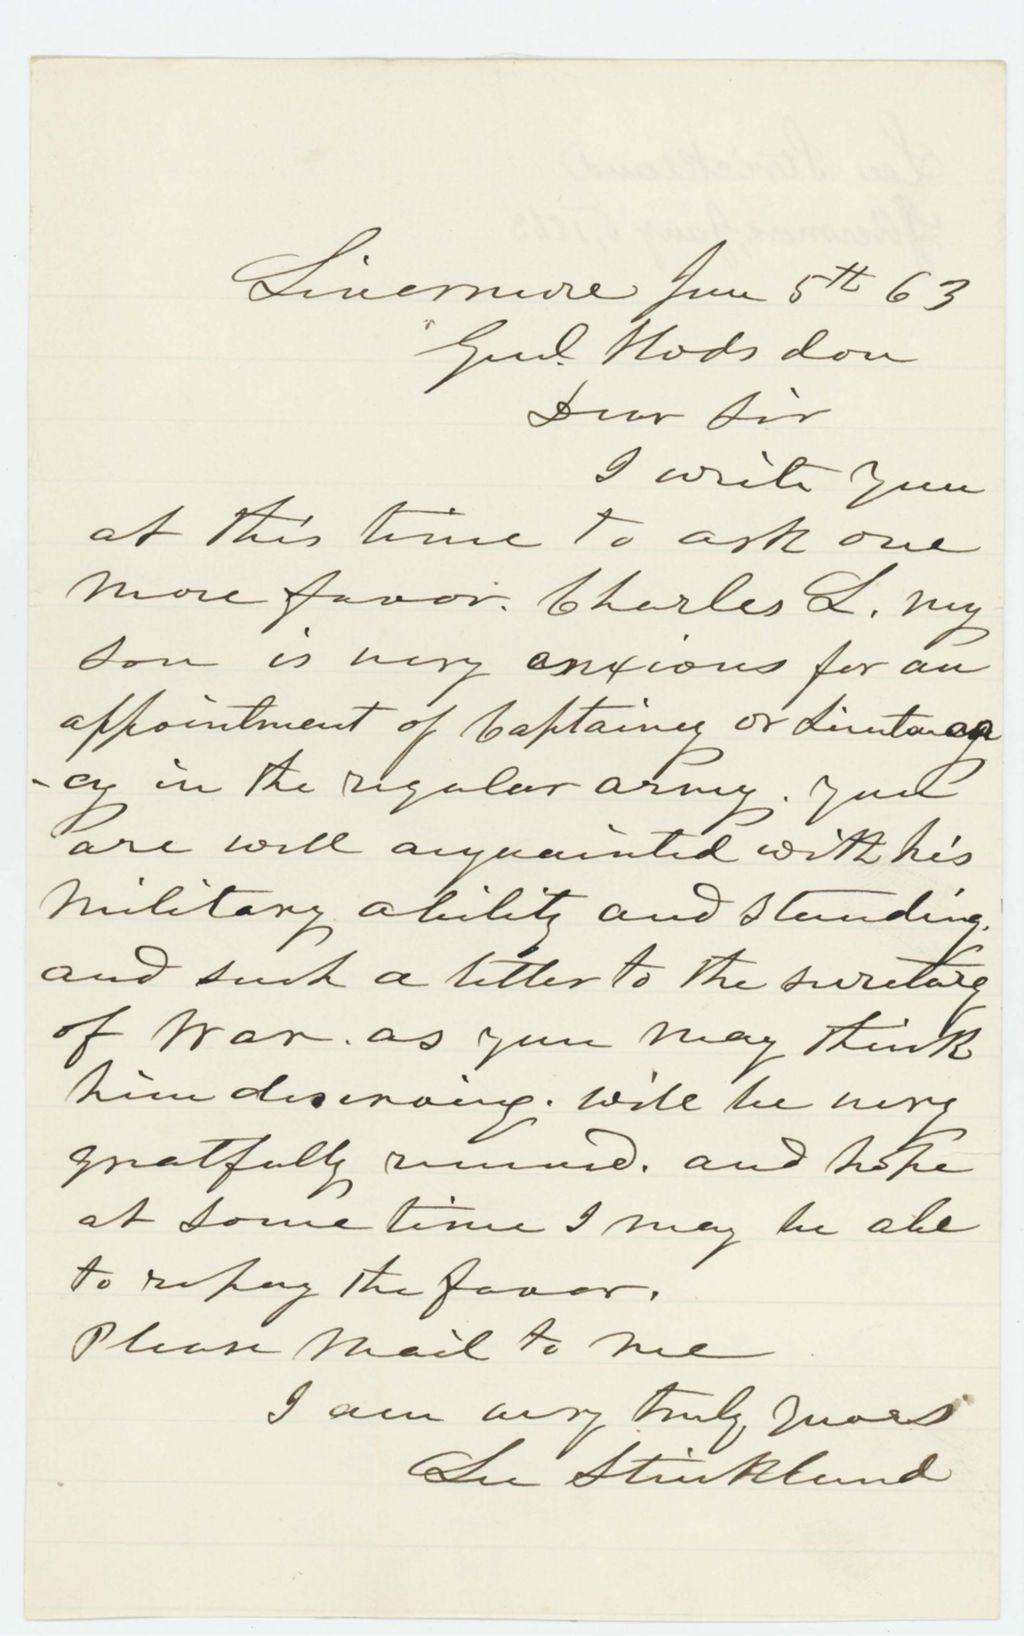 Livermore Jan 5th 63
Genl. Hodsdon
Dear Sir
I write you
at this time to ask one
more favor. Charles L. my
son is very anxious for an
appointment of Captaincy or Lieutenan
-cy in the regular army. you
are well acquainted with his
military ability and standing.
and such a letter to the secretary
of War. as you may think
him deserving. will be very
gratfully received. and hope
at some time I may be able
to repay the favor.
Please mail to me
I am very truly yours
Lee Strickland